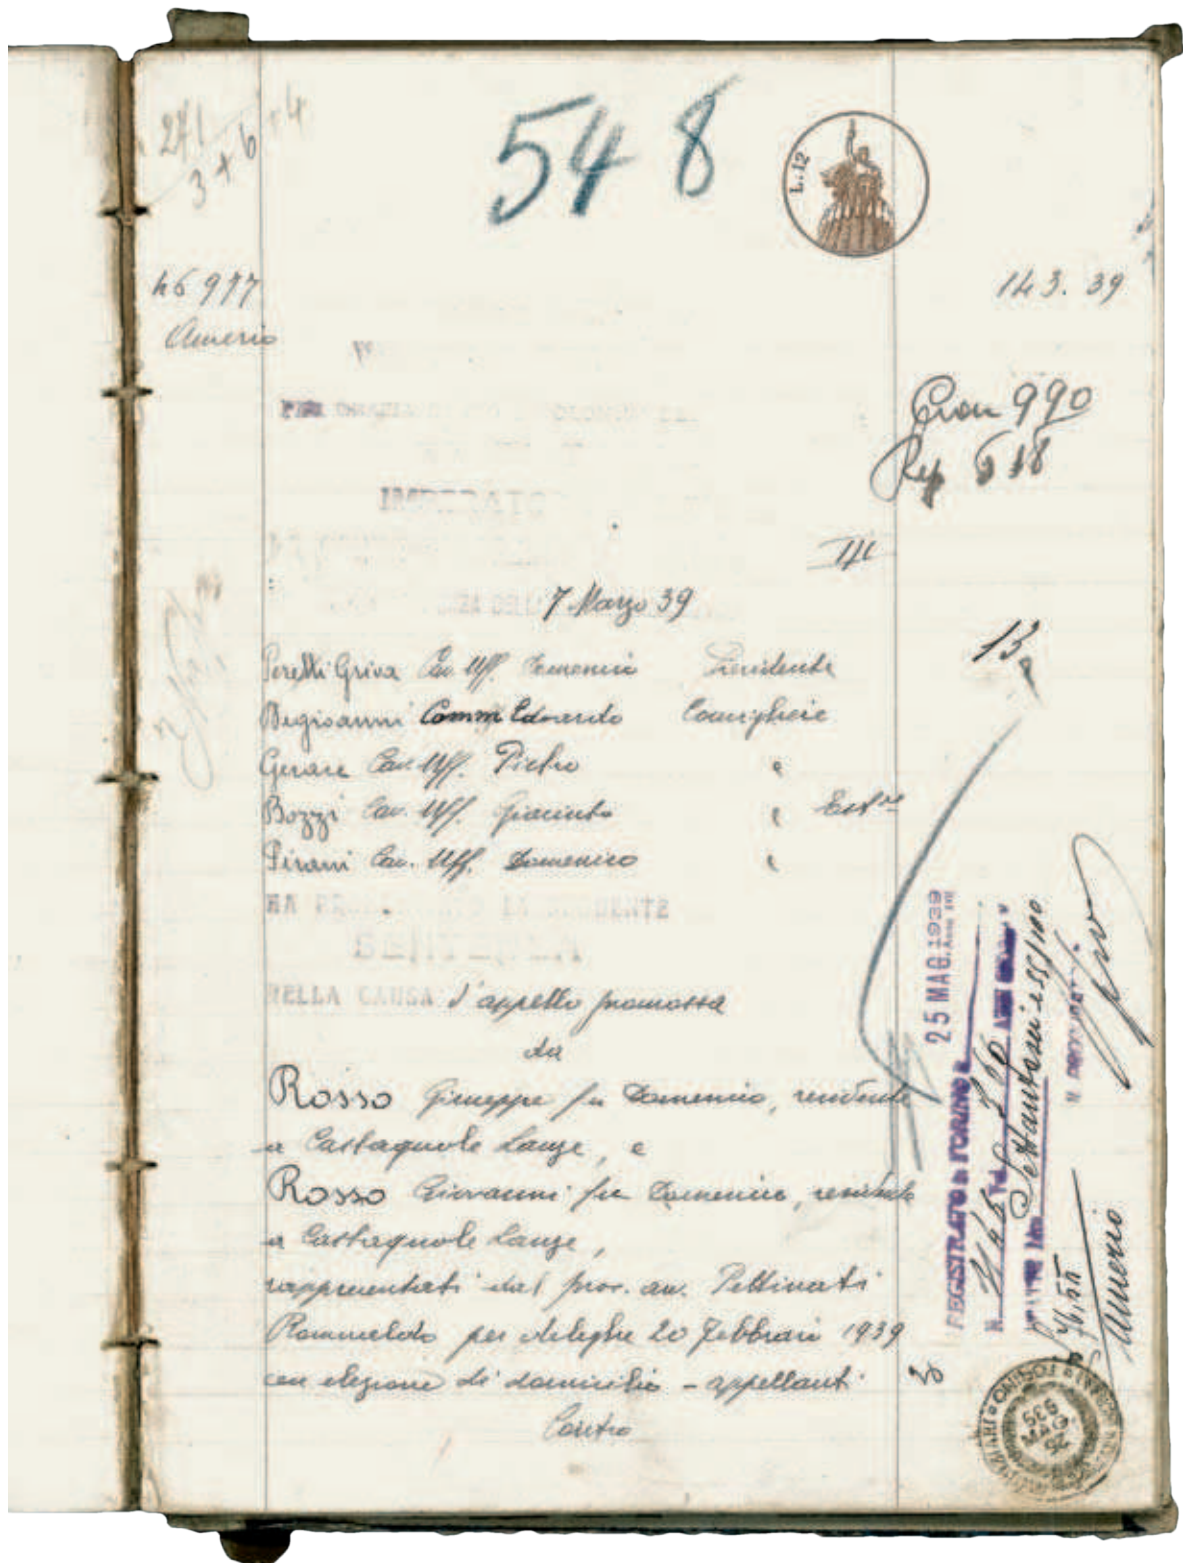 241
3 + 6 + 4
548
L. 12
46977
143. 39
Amerio
Cron 990
Rep 518
IMPERATO
III
7 Marzo 39
13
Peretti Griva Cav. Uff. Domenico Presidente
Begioanni Comm Edoardo Consigliere
Gerace Cav. Uff. Pietro "
Bozzi Cav. Uff. Giacinto " Est.re
Pirani Cav. Uff. Domenico "
HA LA SEGUENTE
SENTENZA
NELLA CAUSA d'appello promossa
da
Rosso Giuseppe fu Domenico, residente
a Castagnole Lanze, e
Rosso Giovanni fu Domenico, residente
a Castagnole Lanze,
rappresentati dal proc. avv. Pettinati
Romualdo per deleghe 20 Febbraio 1939
con elezione di domicilio - appellanti
Contro
REGISTRATO a TORINO 25 MAG. 1939
N. Vol.
Settantasei e 55/100
76,55
Amerio
TORINO
26
MAG.
939